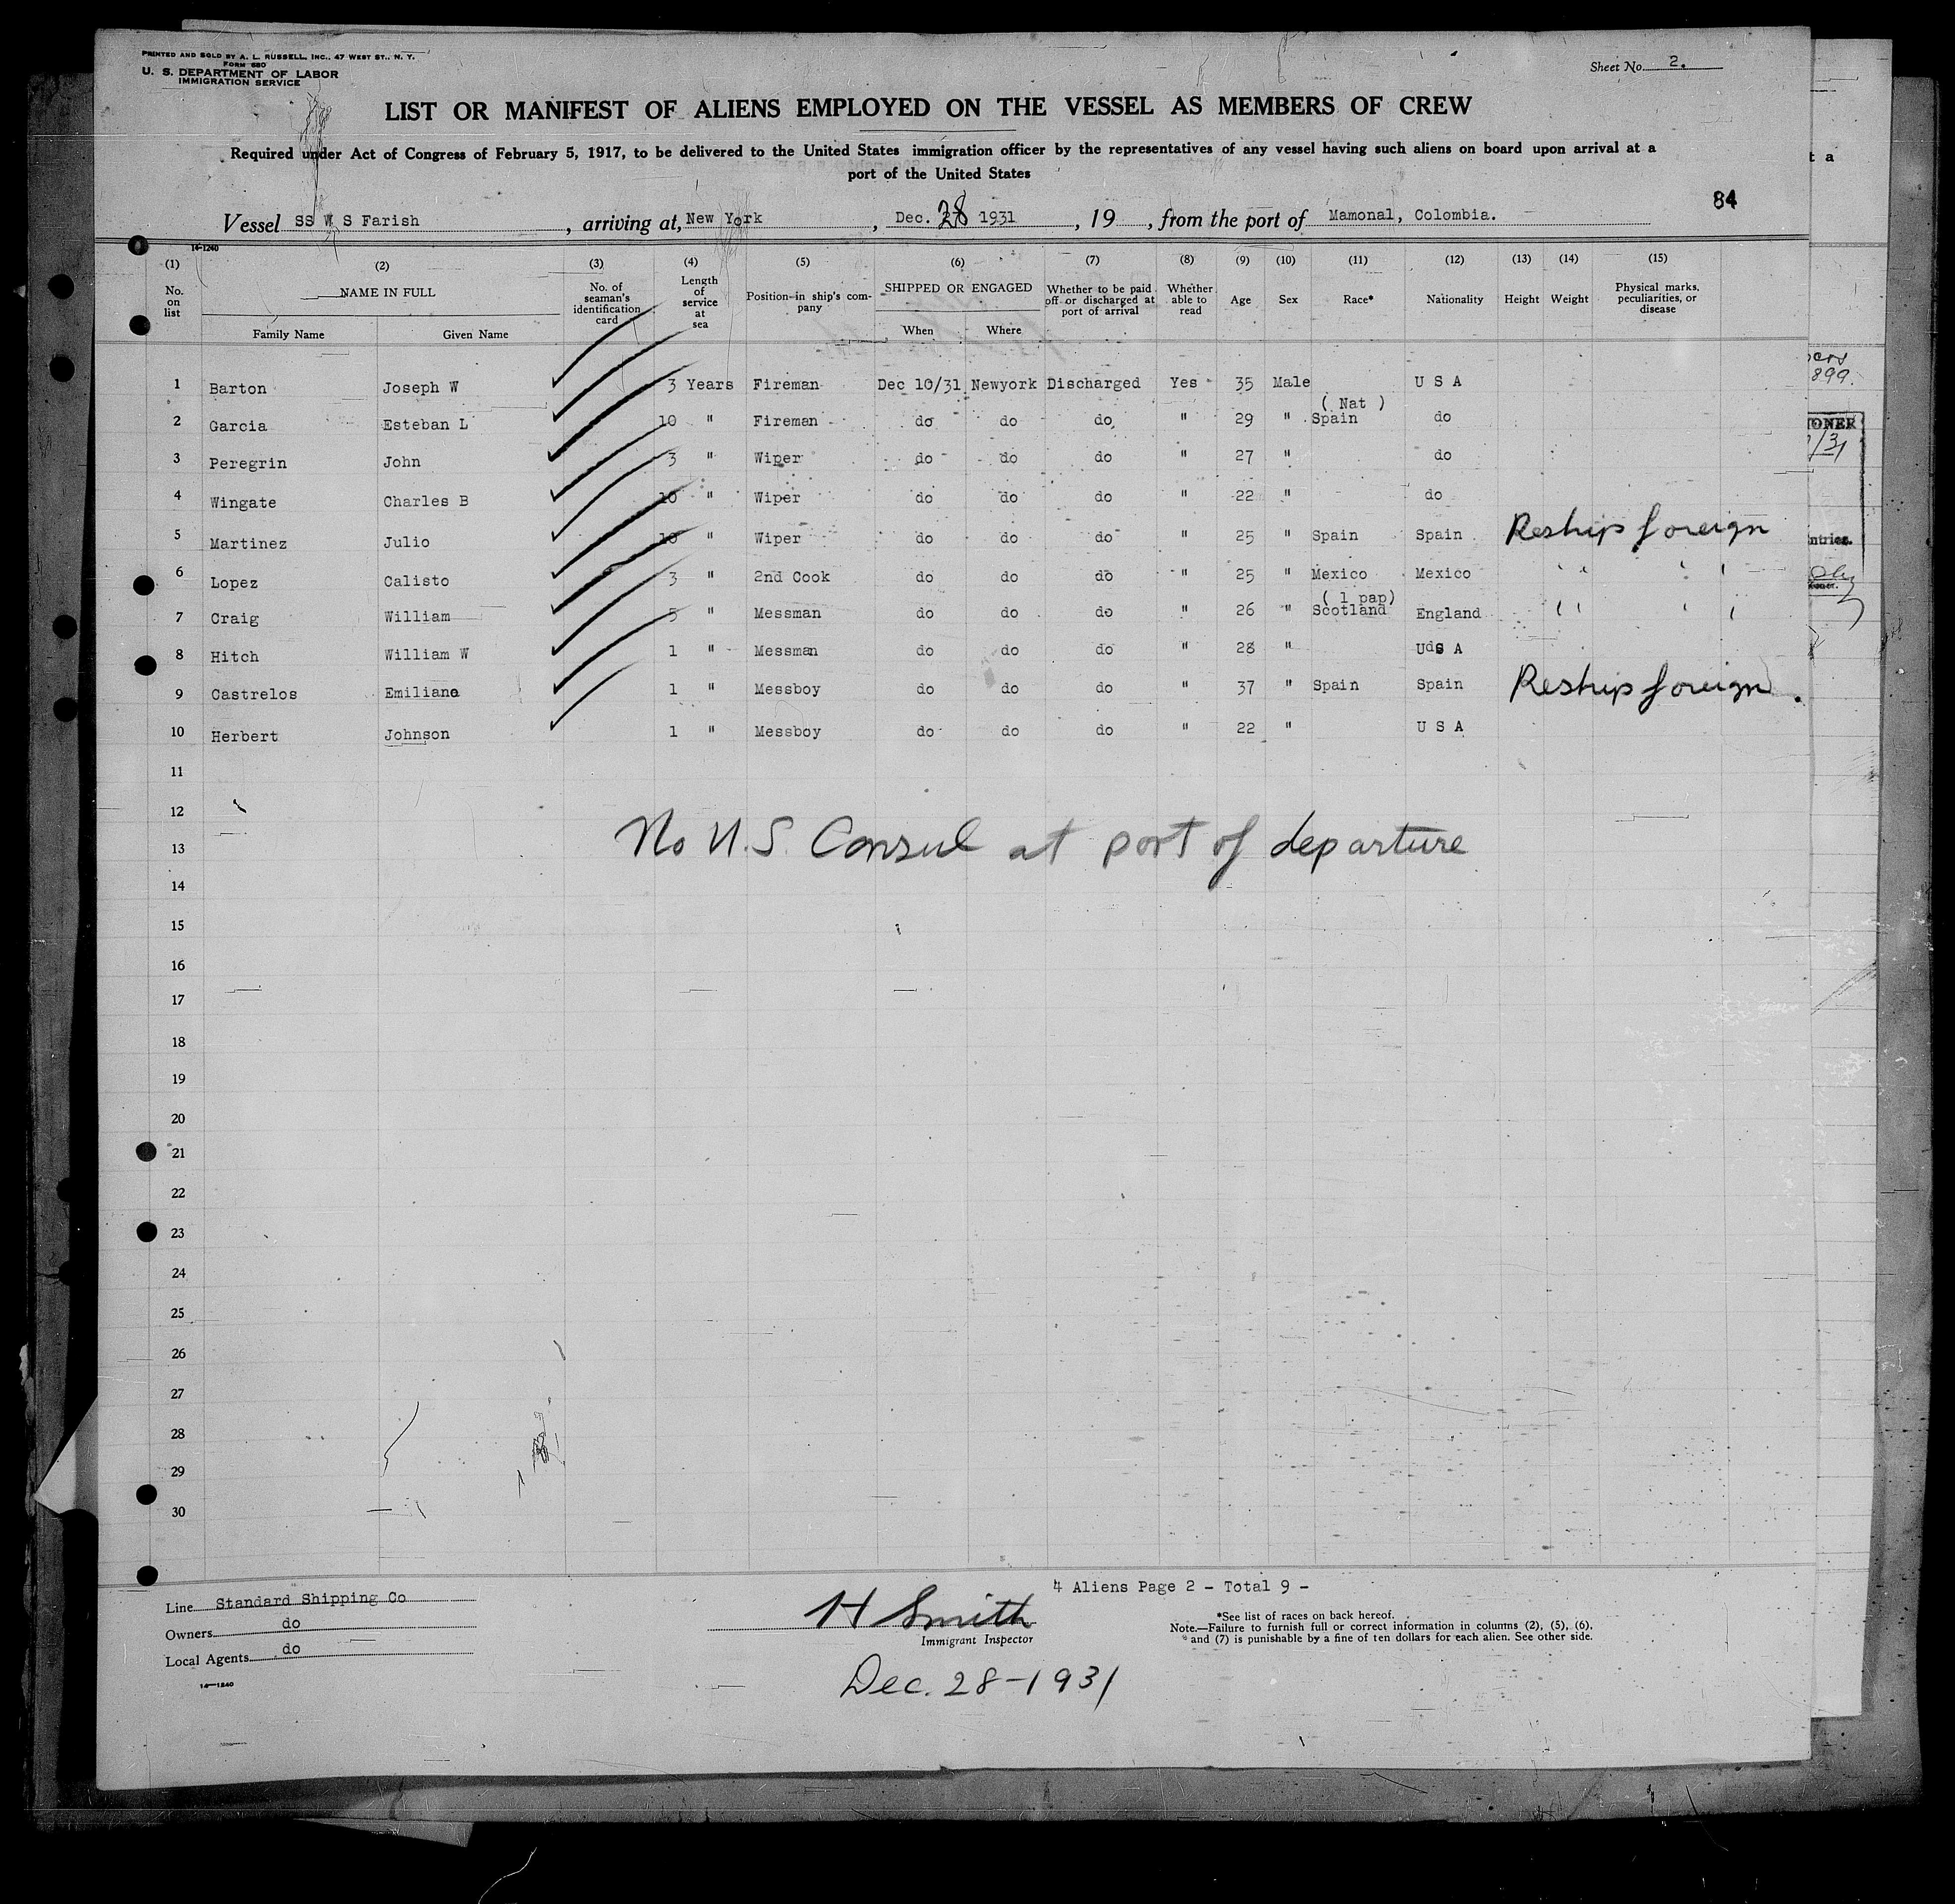 PRINTED AND SOLD BY A. L. RUSSELL, INC., 47 WEST ST., N. Y.
FORM 680
U. S. DEPARTMENT OF LABOR
IMMIGRATION SERVICE
Sheet No. 2.
LIST OR MANIFEST OF ALIENS EMPLOYED ON THE VESSEL AS MEMBERS OF CREW
Required under Act of Congress of February 5, 1917, to be delivered to the United States immigration officer by the representatives of any vessel having such aliens on board upon arrival at a
port of the United States
84
Vessel SS W S Farish , arriving at, New York , Dec. 28 1931 , 19 , from the port of Mamonal, Colombia.
14-1240
(1) (2) (3) (4) (5) (6) (7) (8) (9) (10) (11) (12) (13) (14) (15)
No. on list NAME IN FULL Family Name Given Name No. of seaman's identification card Length of service at sea Position in ship's company SHIPPED OR ENGAGED When Where Whether to be paid off or discharged at port of arrival Whether able to read Age Sex Race* Nationality Height Weight Physical marks, peculiarities, or disease
1 Barton Joseph W 3 Years Fireman Dec 10/31 Newyork Discharged Yes 35 Male U S A
( Nat )
2 Garcia Esteban L 10 " Fireman do do do " 29 " Spain do
3 Peregrin John 3 " Wiper do do do " 27 " do
4 Wingate Charles B 10 " Wiper do do do " 22 " do
5 Martinez Julio 10 " Wiper do do do " 25 " Spain Spain Reship foreign
6 Lopez Calisto 3 " 2nd Cook do do do " 25 " Mexico Mexico " "
( 1 pap)
7 Craig William 5 " Messman do do do " 26 " Scotland England " "
8 Hitch William W 1 " Messman do do do " 28 " UdS A
9 Castrelos Emiliano 1 " Messboy do do do " 37 " Spain Spain Reship foreign.
10 Herbert Johnson 1 " Messboy do do do " 22 " U S A
11
12
No U.S. Consul at port of departure
13
14
15
16
17
18
19
20
21
22
23
24
25
26
27
28
29
30
4 Aliens Page 2 - Total 9 -
Line Standard Shipping Co
Owners do
Local Agents do
14-1240
H Smith
Immigrant Inspector
Dec. 28-1931
*See list of races on back hereof.
Note.—Failure to furnish full or correct information in columns (2), (5), (6),
and (7) is punishable by a fine of ten dollars for each alien. See other side.
t a
899.